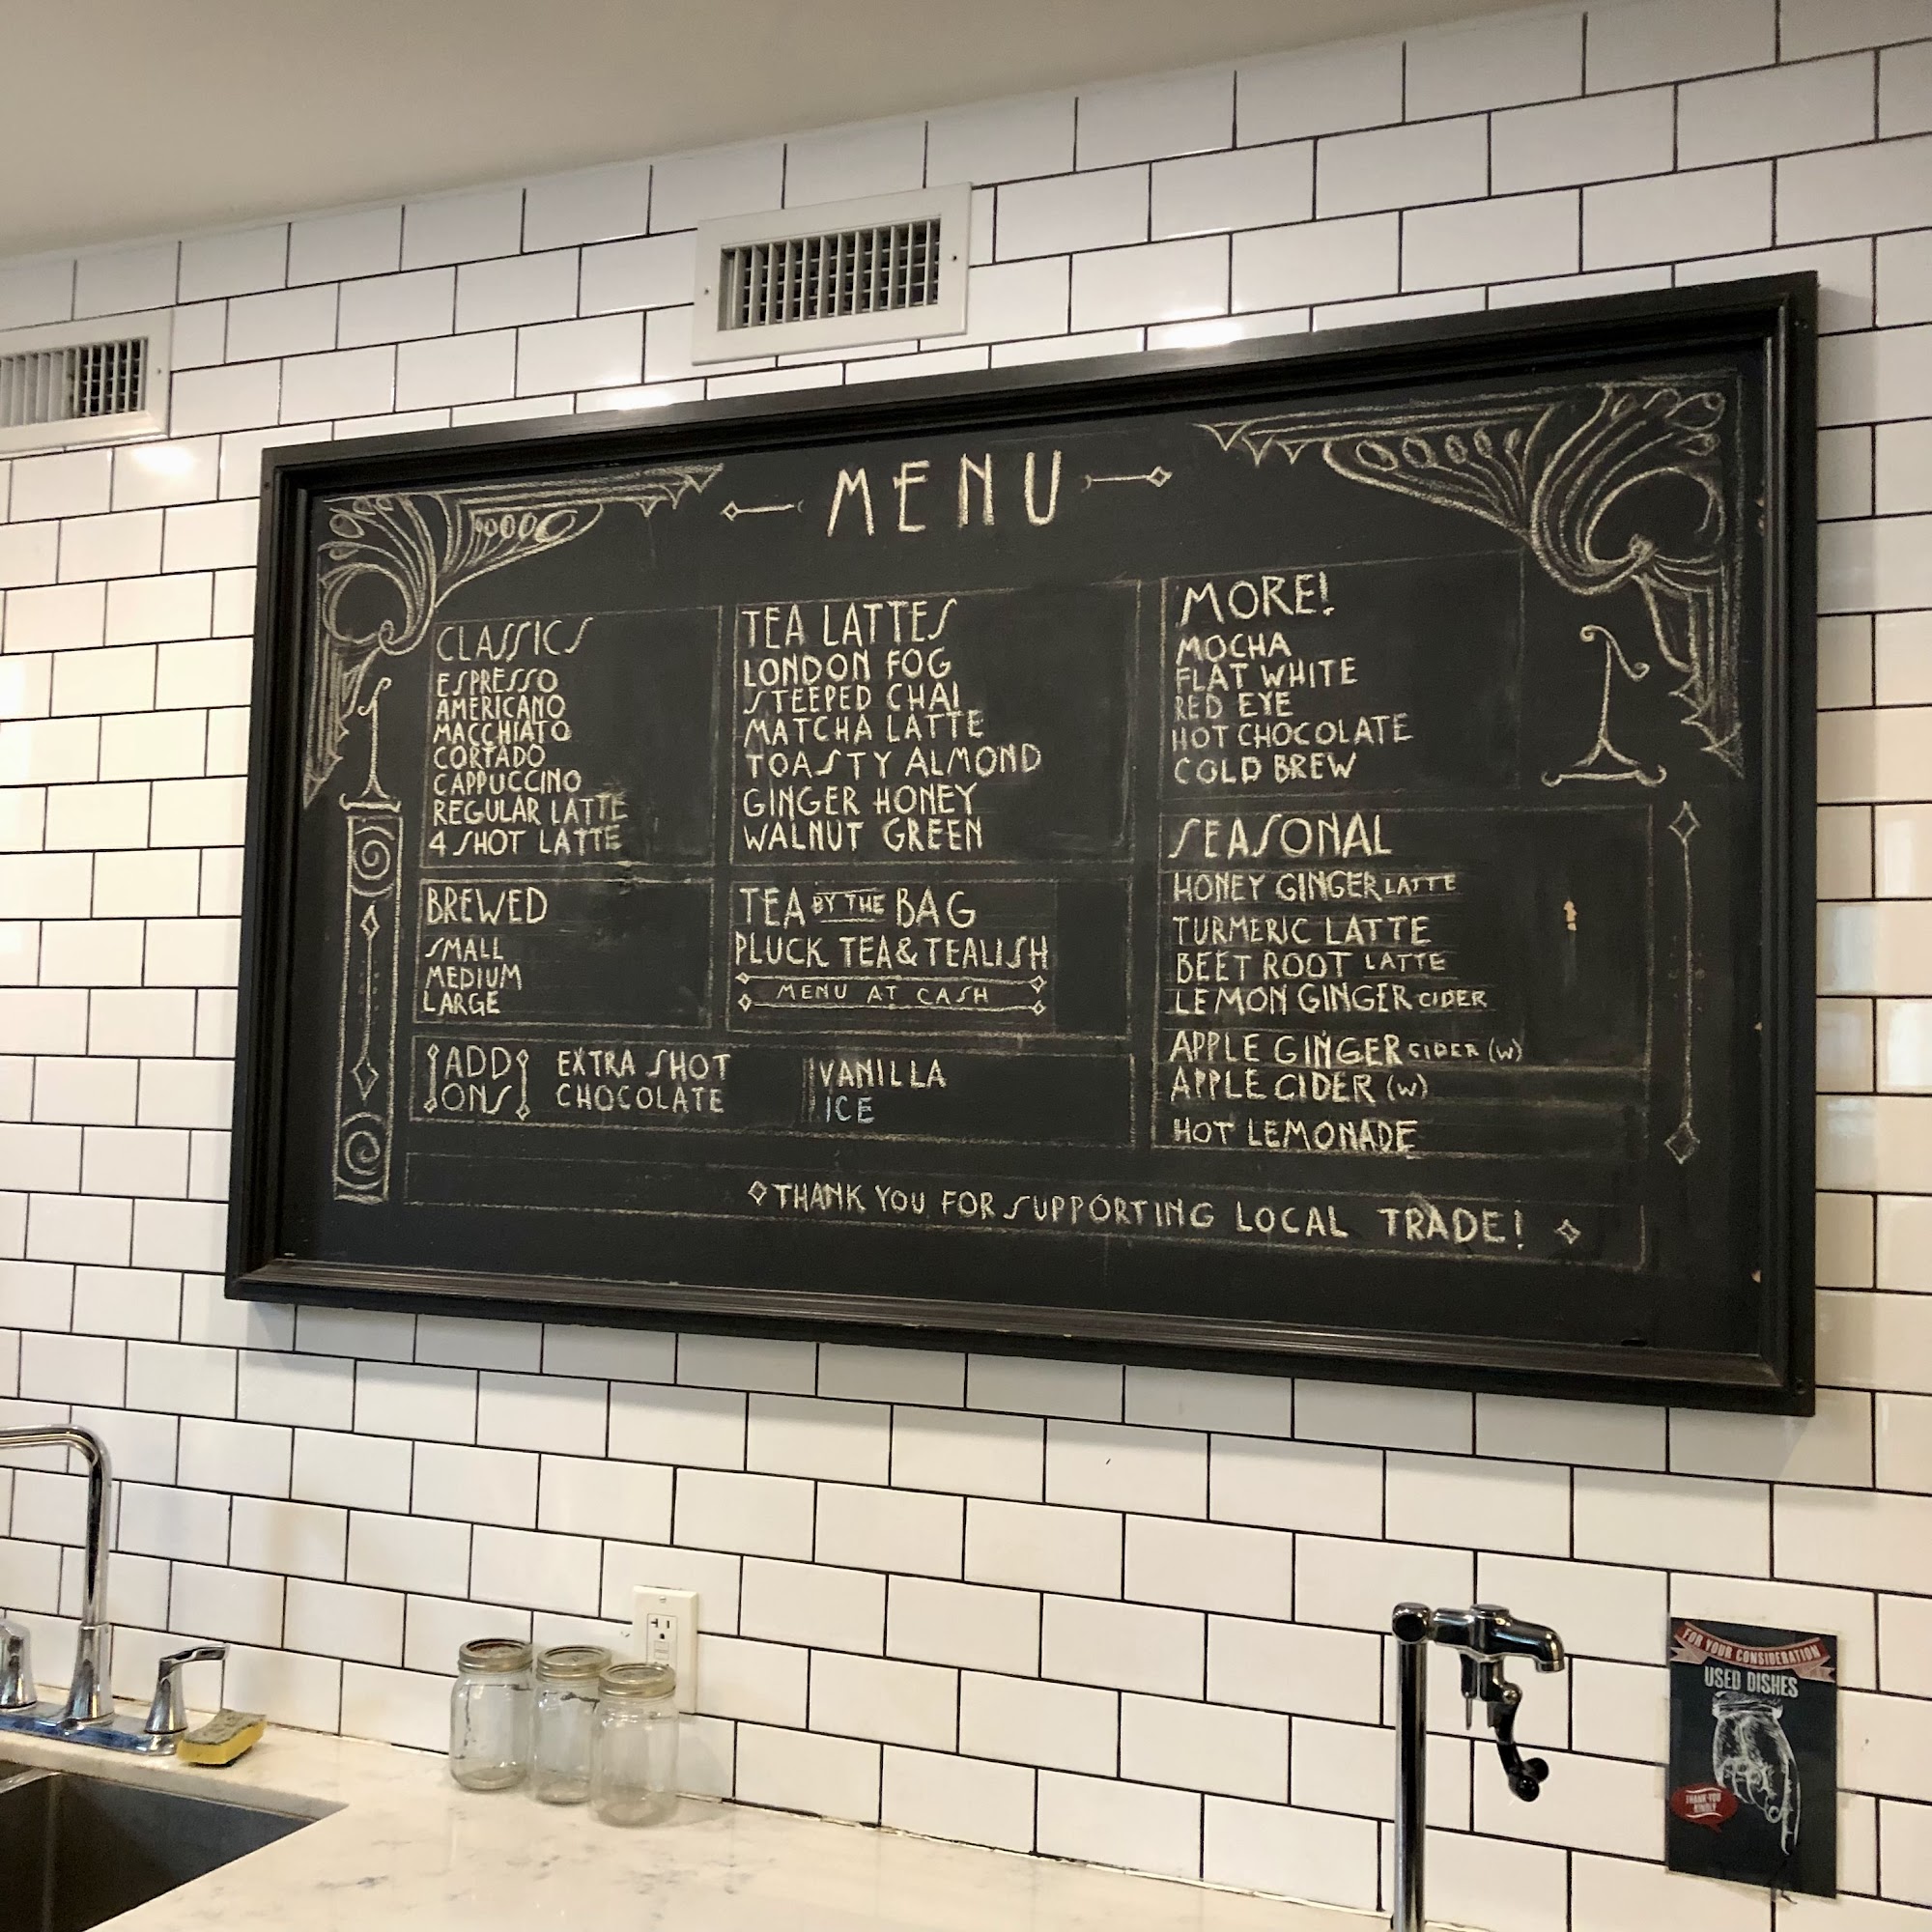 MENU
CLASSICS
ESPRESSO
AMERICANO
MACCHIATO
CORTADO
CAPPUCCINO
REGULAR LATTE
4 SHOT LATTE
BREWED
SMALL
MEDIUM
LARGE
TEA LATTES
LONDON FOG
STEEPED CHAI
MATCHA LATTE
TOASTY ALMOND
GINGER HONEY
WALNUT GREEN
TEA BY THE BAG
PLUCK TEA & TEALISH
MENU AT CASH
ADD ONS
EXTRA SHOT
CHOCOLATE
VANILLA
ICE
MORE!
MOCHA
FLAT WHITE
RED EYE
HOT CHOCOLATE
COLD BREW
SEASONAL
HONEY GINGER LATTE
TURMERIC LATTE
BEET ROOT LATTE
LEMON GINGER CIDER
APPLE GINGER CIDER (W)
APPLE CIDER (W)
HOT LEMONADE
THANK YOU FOR SUPPORTING LOCAL TRADE!
FOR YOUR CONSIDERATION
USED DISHES
THANK YOU
KINDLY